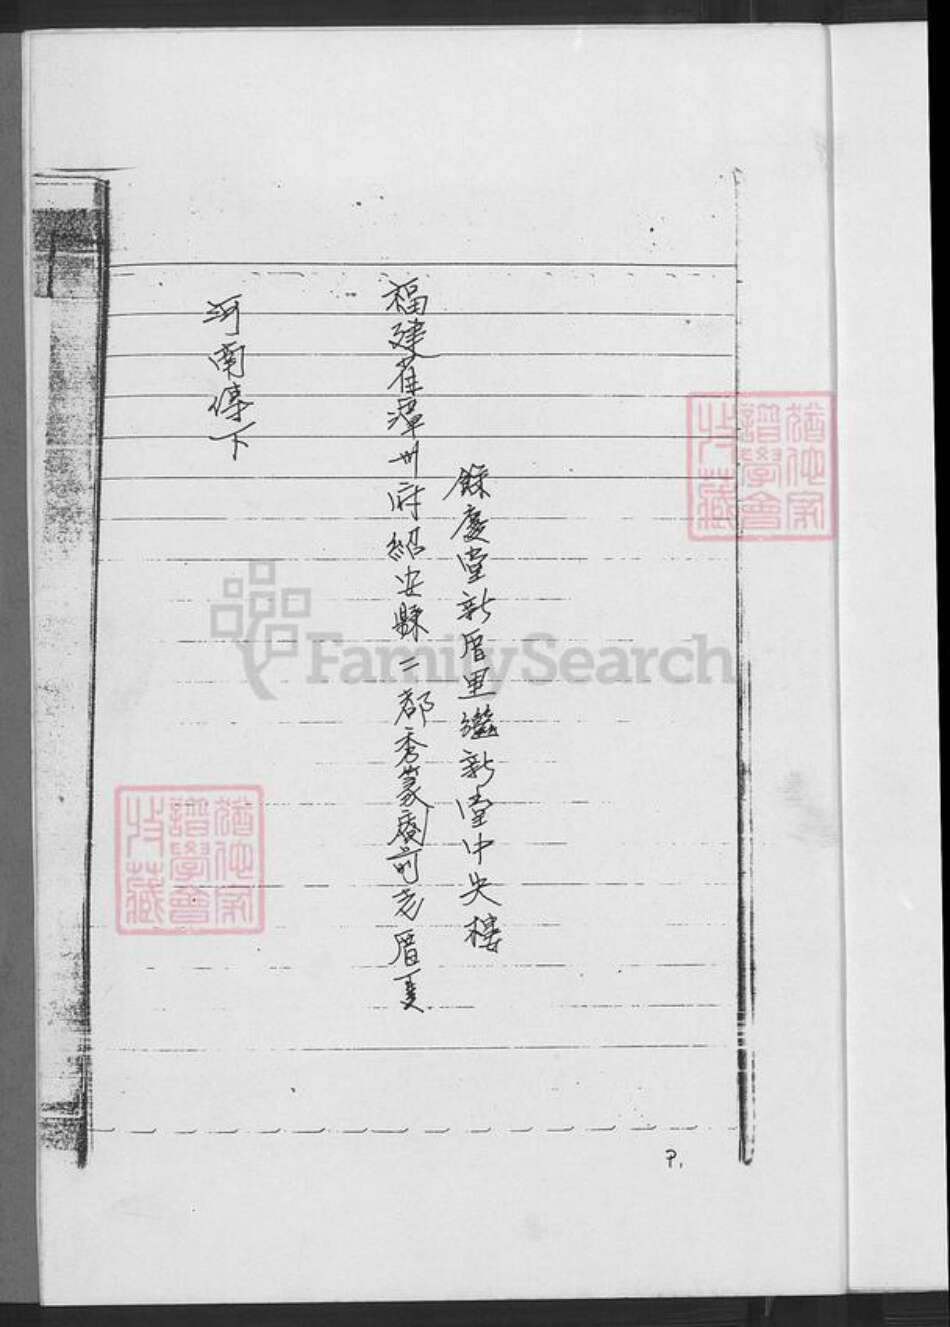 餘慶堂新厝里繼新堂中央樓
福建省漳州府紹安縣二都秀篆廟前老厝
河南停下
猶他家
譜學會
收藏
猶他家
譜學會
收藏
FamilySearch
P.